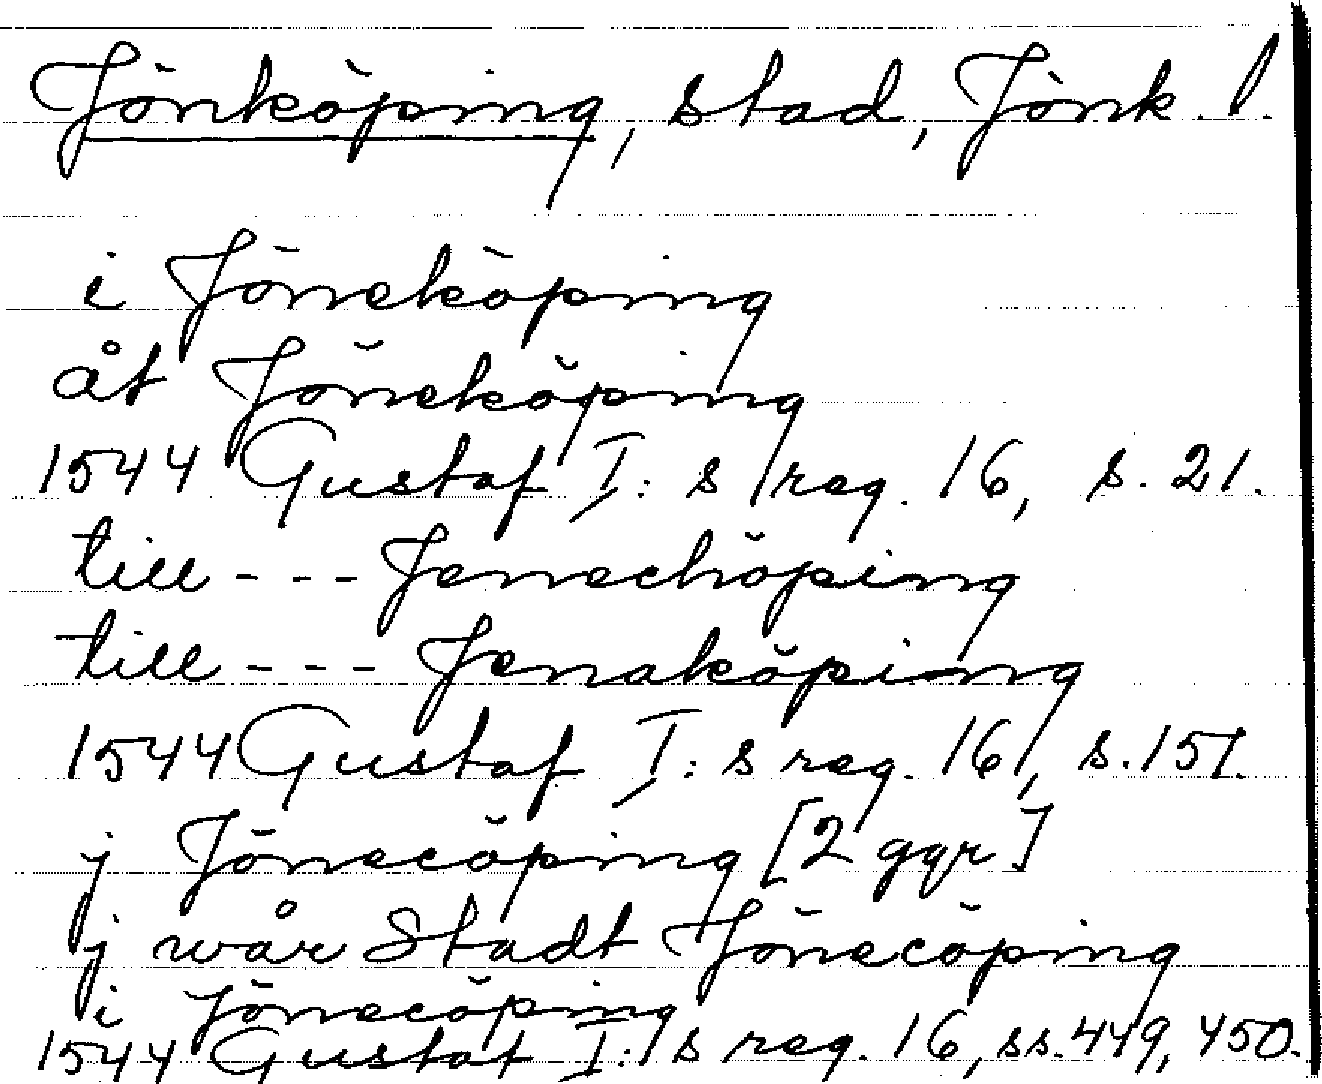 Jönköping, stad, Jönk. l.
i Jöneköping
åt Jöneköping
1544 Gustaf I:s reg. 16, s. 21.
till --- Jenechöping
till --- Jenaköping
1544 Gustaf I:s reg. 16, s. 151.
j Jönecöping [2 ggr]
j wår Stadt Jönecöping
i Jönecöping
1544 Gustaf I:s reg. 16, ss. 449, 450.